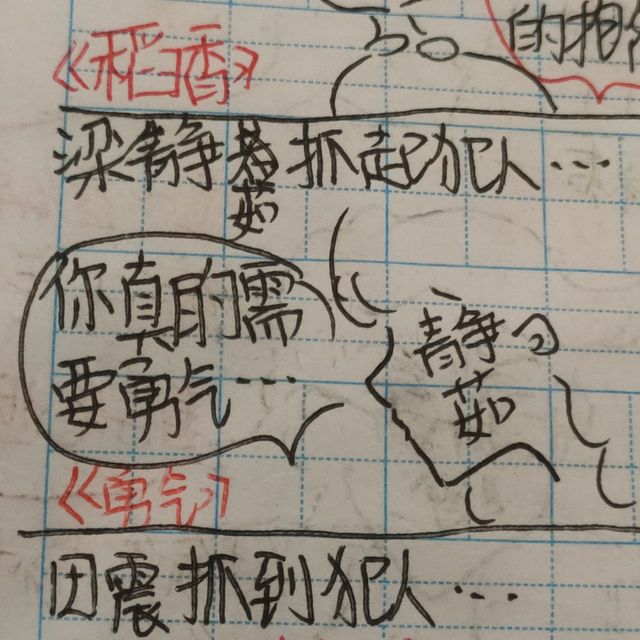 的相
《稻香》
梁静茹抓起犯人…
你真的需
要勇气…
静
茹
《勇气》
田震抓到犯人…